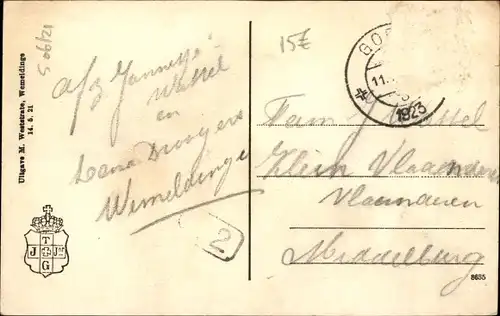 15£
Afz Jannetje
Wessel
en
Lena
Wemeldinge
2
Uitgave M. Weststrate, Wemeldinge
14. 5. 21
T
J JR
G
GO
11.
1923
Fam J Wessel
Klein Vlaanderen
Vlaanderen
Middelburg
8635